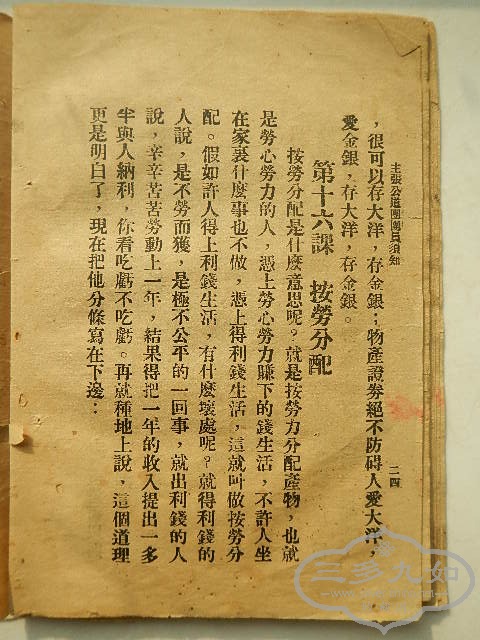 主張公道團團員須知
二四
，很可以存大洋，存金銀；物產證券絕不防碍人愛大洋，
愛金銀，存大洋，存金銀。
第十六課　按勞分配
按勞分配是什麼意思呢。就是按勞力分配產物，也就
是勞心勞力的人，憑上勞心勞力賺下的錢生活，不許人坐
在家裏什麼事也不做，憑上得利錢生活，這就叫做按勞分
配。假如許人得上利錢生活，有什麼壞處呢？就得利錢的
人說，是不勞而獲，是極不公平的一回事，就出利錢的人
說，辛辛苦苦勞動上一年，結果得把一年的收入提出一多
半與人納利，你看吃虧不吃虧。再就種地上說，這個道理
更是明白了，現在把他分條寫在下邊：
三多九如